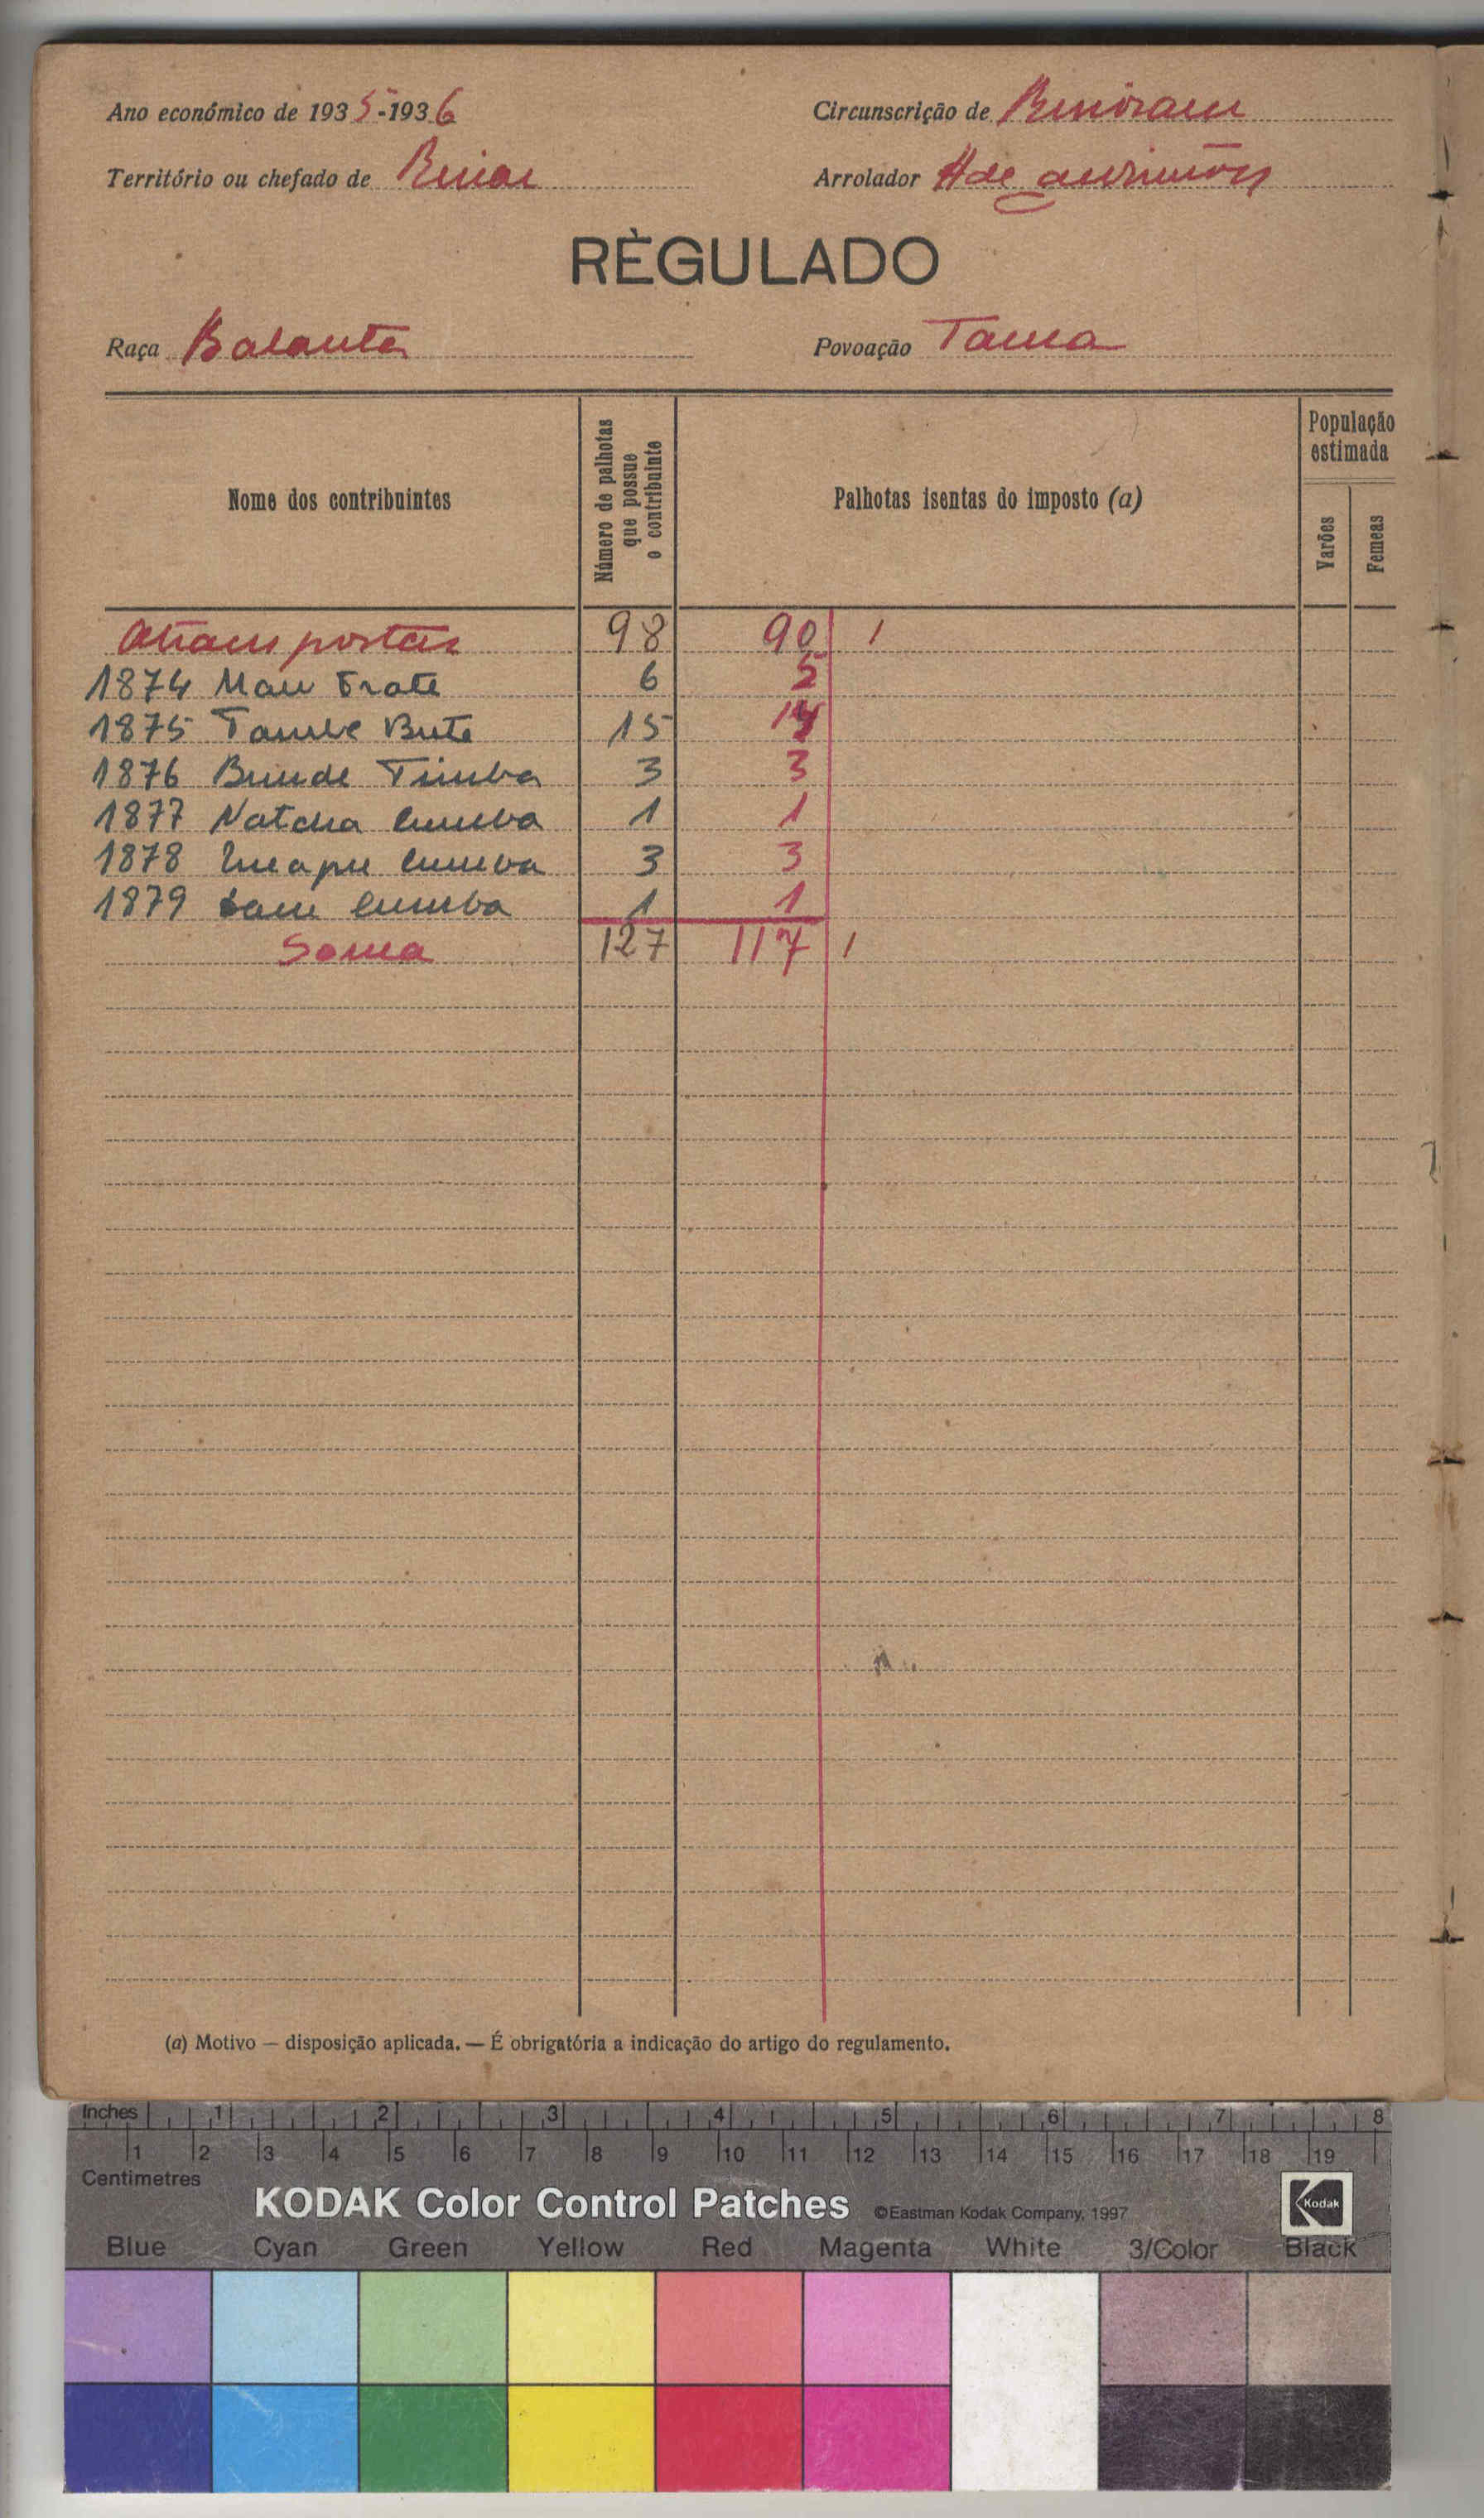 Ano económico de 1935-1936
Circunscrição de
Território ou chefado de Binar
Arrolador
RÈGULADO
Raça Balanta
Povoação Tama
Nome dos contribuintes
Número de palhotas que possue o contribuinte
Palhotas isentas do imposto (a)
População estimada
Varões
Femeas
98 90 1
1874 Mau Frate 6 5
1875 Tambe Bute 15 14
1876 Bunde Timba 3 3
1877 Natcha Cumba 1 1
1878 Cumba 3 3
1879 Cumba 1 1
Soma 127 117 1
(a) Motivo — disposição aplicada. — É obrigatória a indicação do artigo do regulamento.
Inches 1 2 3 4 5 6 7 8
1 2 3 4 5 6 7 8 9 10 11 12 13 14 15 16 17 18 19
Centimetres
KODAK Color Control Patches ©Eastman Kodak Company, 1997 Kodak
Blue Cyan Green Yellow Red Magenta White 3/Color Black